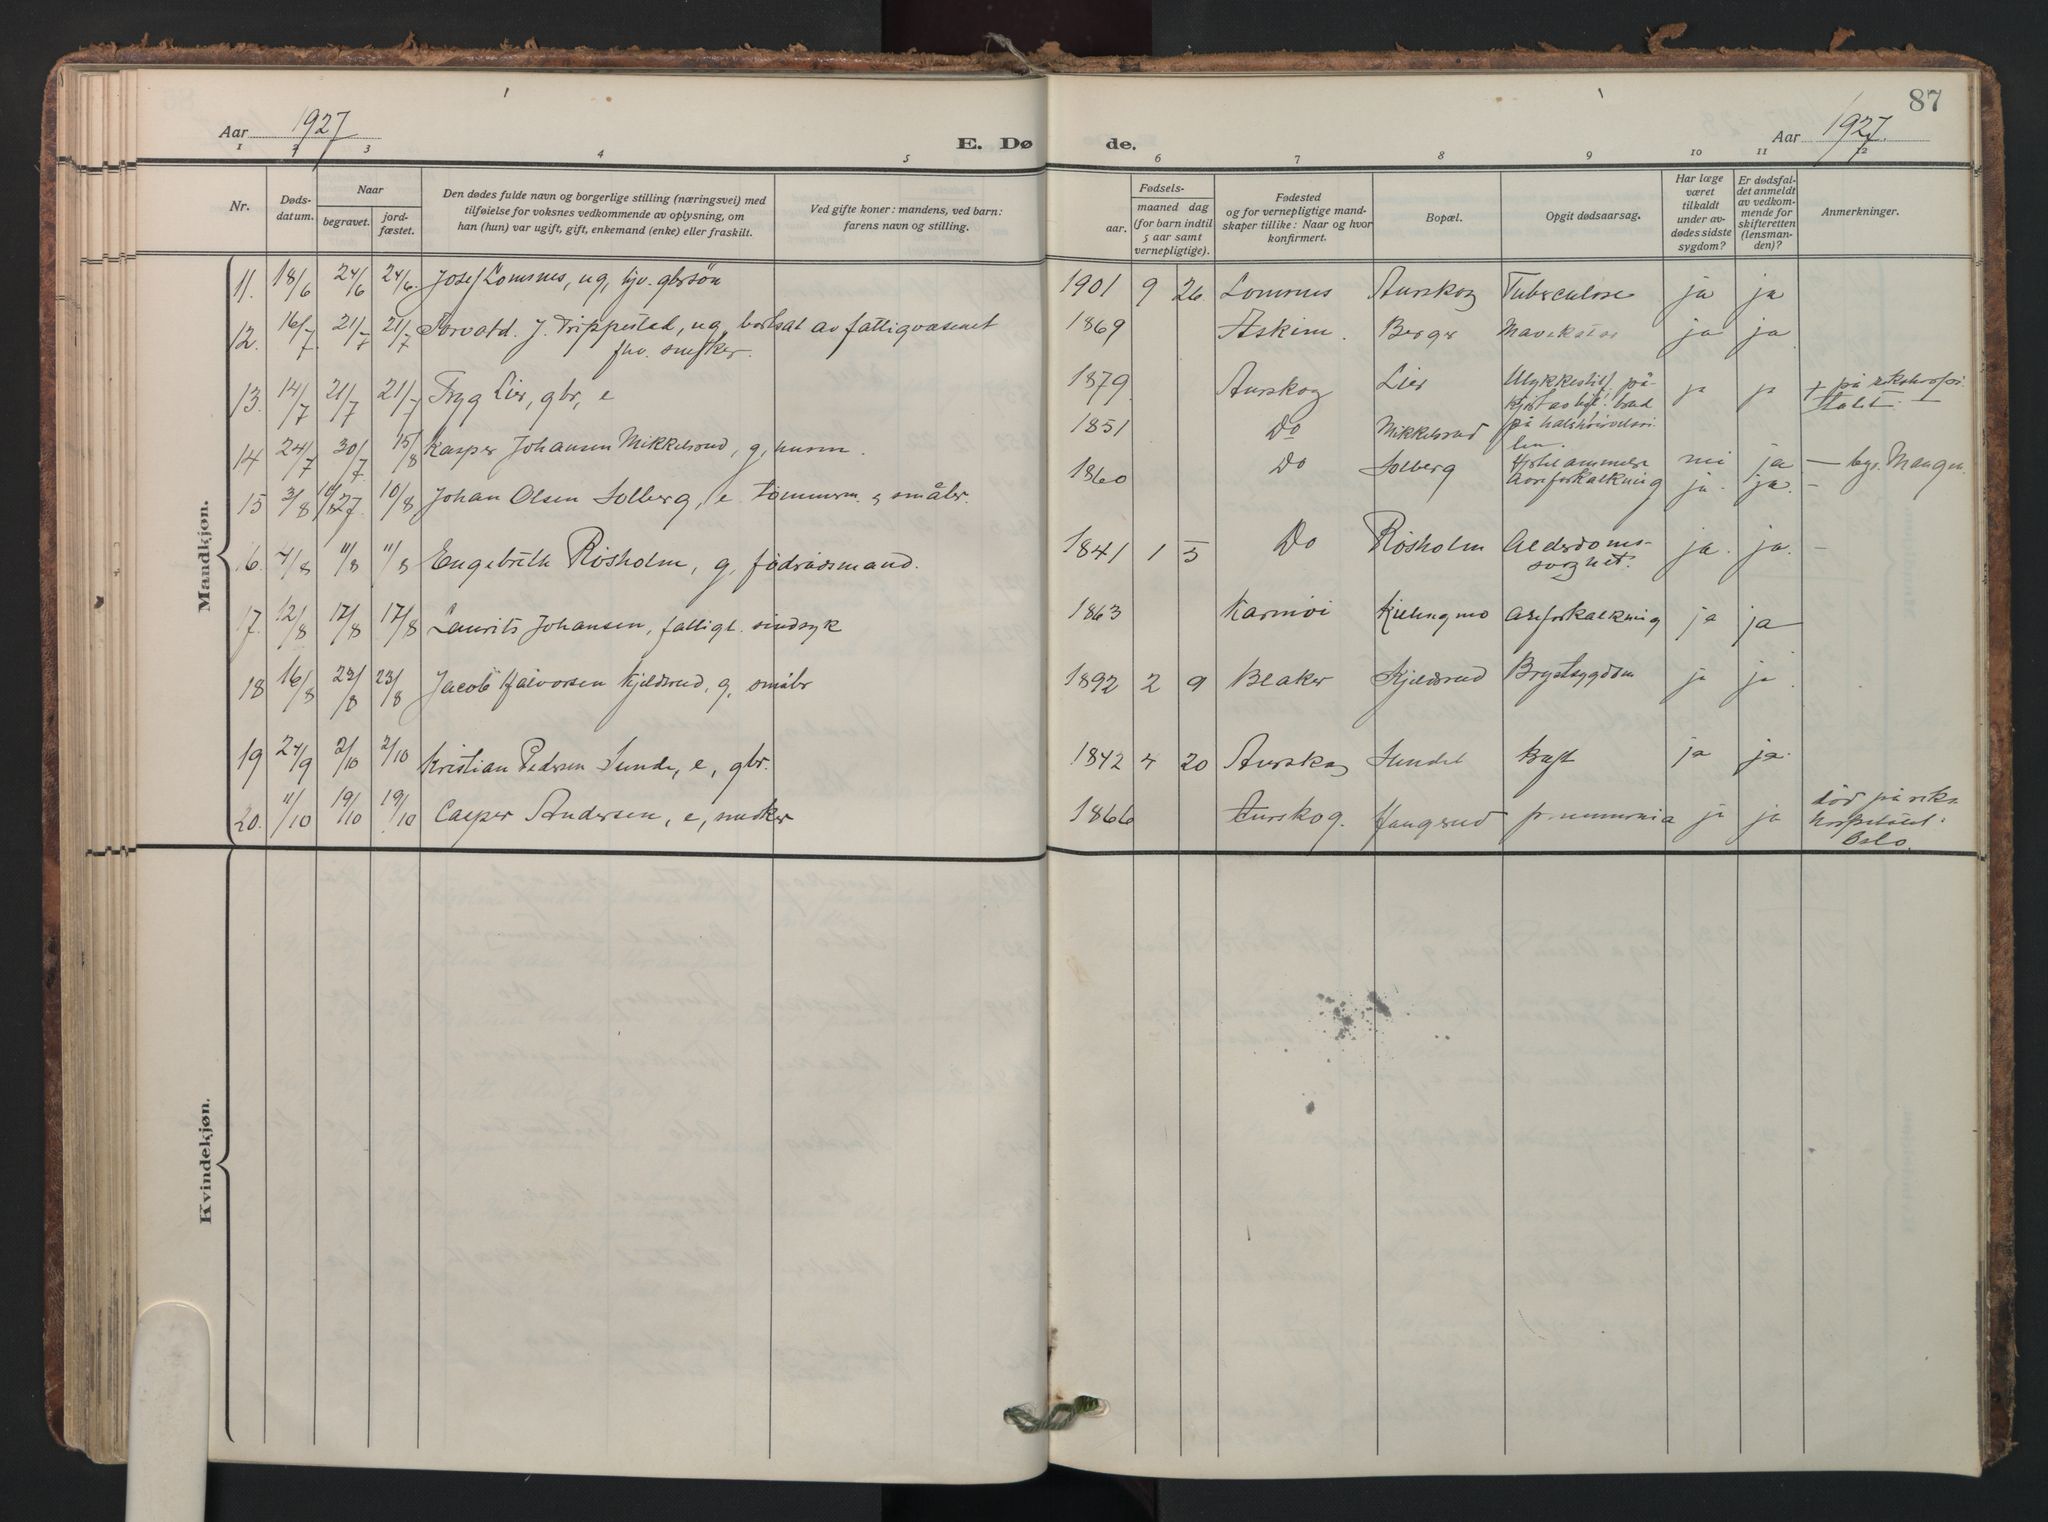 87
Aar 1927
E. Døde.
Aar 1927
1 2 3 4 5 6 7 8 9 10 11 12
Nr.
Døds-
datum.
Naar
begravet.
jord-
fæstet.
Den dødes fulde navn og borgerlige stilling (næringsvei) med
tilføielse for voksnes vedkommende av oplysning, om
han (hun) var ugift, gift, enkemand (enke) eller fraskilt.
Ved gifte koner: mandens, ved barn:
farens navn og stilling.
Fødsels-
aar. maaned dag
(for barn indtil
5 aar samt
vernepligtige).
Fødested
og for vernepligtige mand-
skaper tillike: Naar og hvor
konfirmert.
Bopæl.
Opgit dødsaarsag.
Har læge
været
tilkaldt
under av-
dødes sidste
sygdom?
Er dødsfal-
det anmeldt
av vedkom-
mende for
skifteretten
(lensman-
den)?
Anmerkninger.
Mandkjøn.
11. 18/6 24/6 24/6 Josef Lomsnes, ug, hjv. gbrsön 1901 9 26 Lomsnes Aurskog Tuberculose ja ja
12. 16/7 21/7 21/7 Torvald. J. Trippestad, ug, bortsat av fattigvæsenet 1869 Askim Berger ja ja
fhv. snefker.
13. 14/7 21/7 21/7 Tryg Lier, gbr, e 1879 Aurskog Lier Ulykkestilf. på- ja ja + på rikshospi-
talet.
14 24/7 30/7 15/8 Kasper Johansen Mikkelsrud, g, husm. 1851 Do Mikkelsrud nei ja – Mangen
15 3/8 10/8 27. 10/8 Johan Olsen Solberg, e tømmerm. & småbr. 1860 Do Solberg Aareforkalkning ja. ja. –
16. 4/8 11/8 11/8 Engebreth Rösholm, g, födrådsmand. 1841 1 5 Do Rösholm Alderdoms- ja. ja. –
17. 12/8 17/8 17/8 Laurits Johansen, fattigl. sindsyk 1863 Karmöi Areforkalkning ja ja
18 16/8 23/8 23/8 Jacob Halvorsen Kjeldsrud, g, småbr 1892 2 9 Blaker Kjeldsrud Brystsygdom ja ja
19 24/9 2/10 2/10 Kristian Pedersen Sunde, e, gbr. 1842 4 20 Aurskog Sundet ja ja.
20. 11/10 19/10 19/10 Casper Andersen, e, snedker 1866 Aurskog. Haugsrud pneumonia ja ja død på riks
hospitalet
Oslo.
Kvindekjøn.